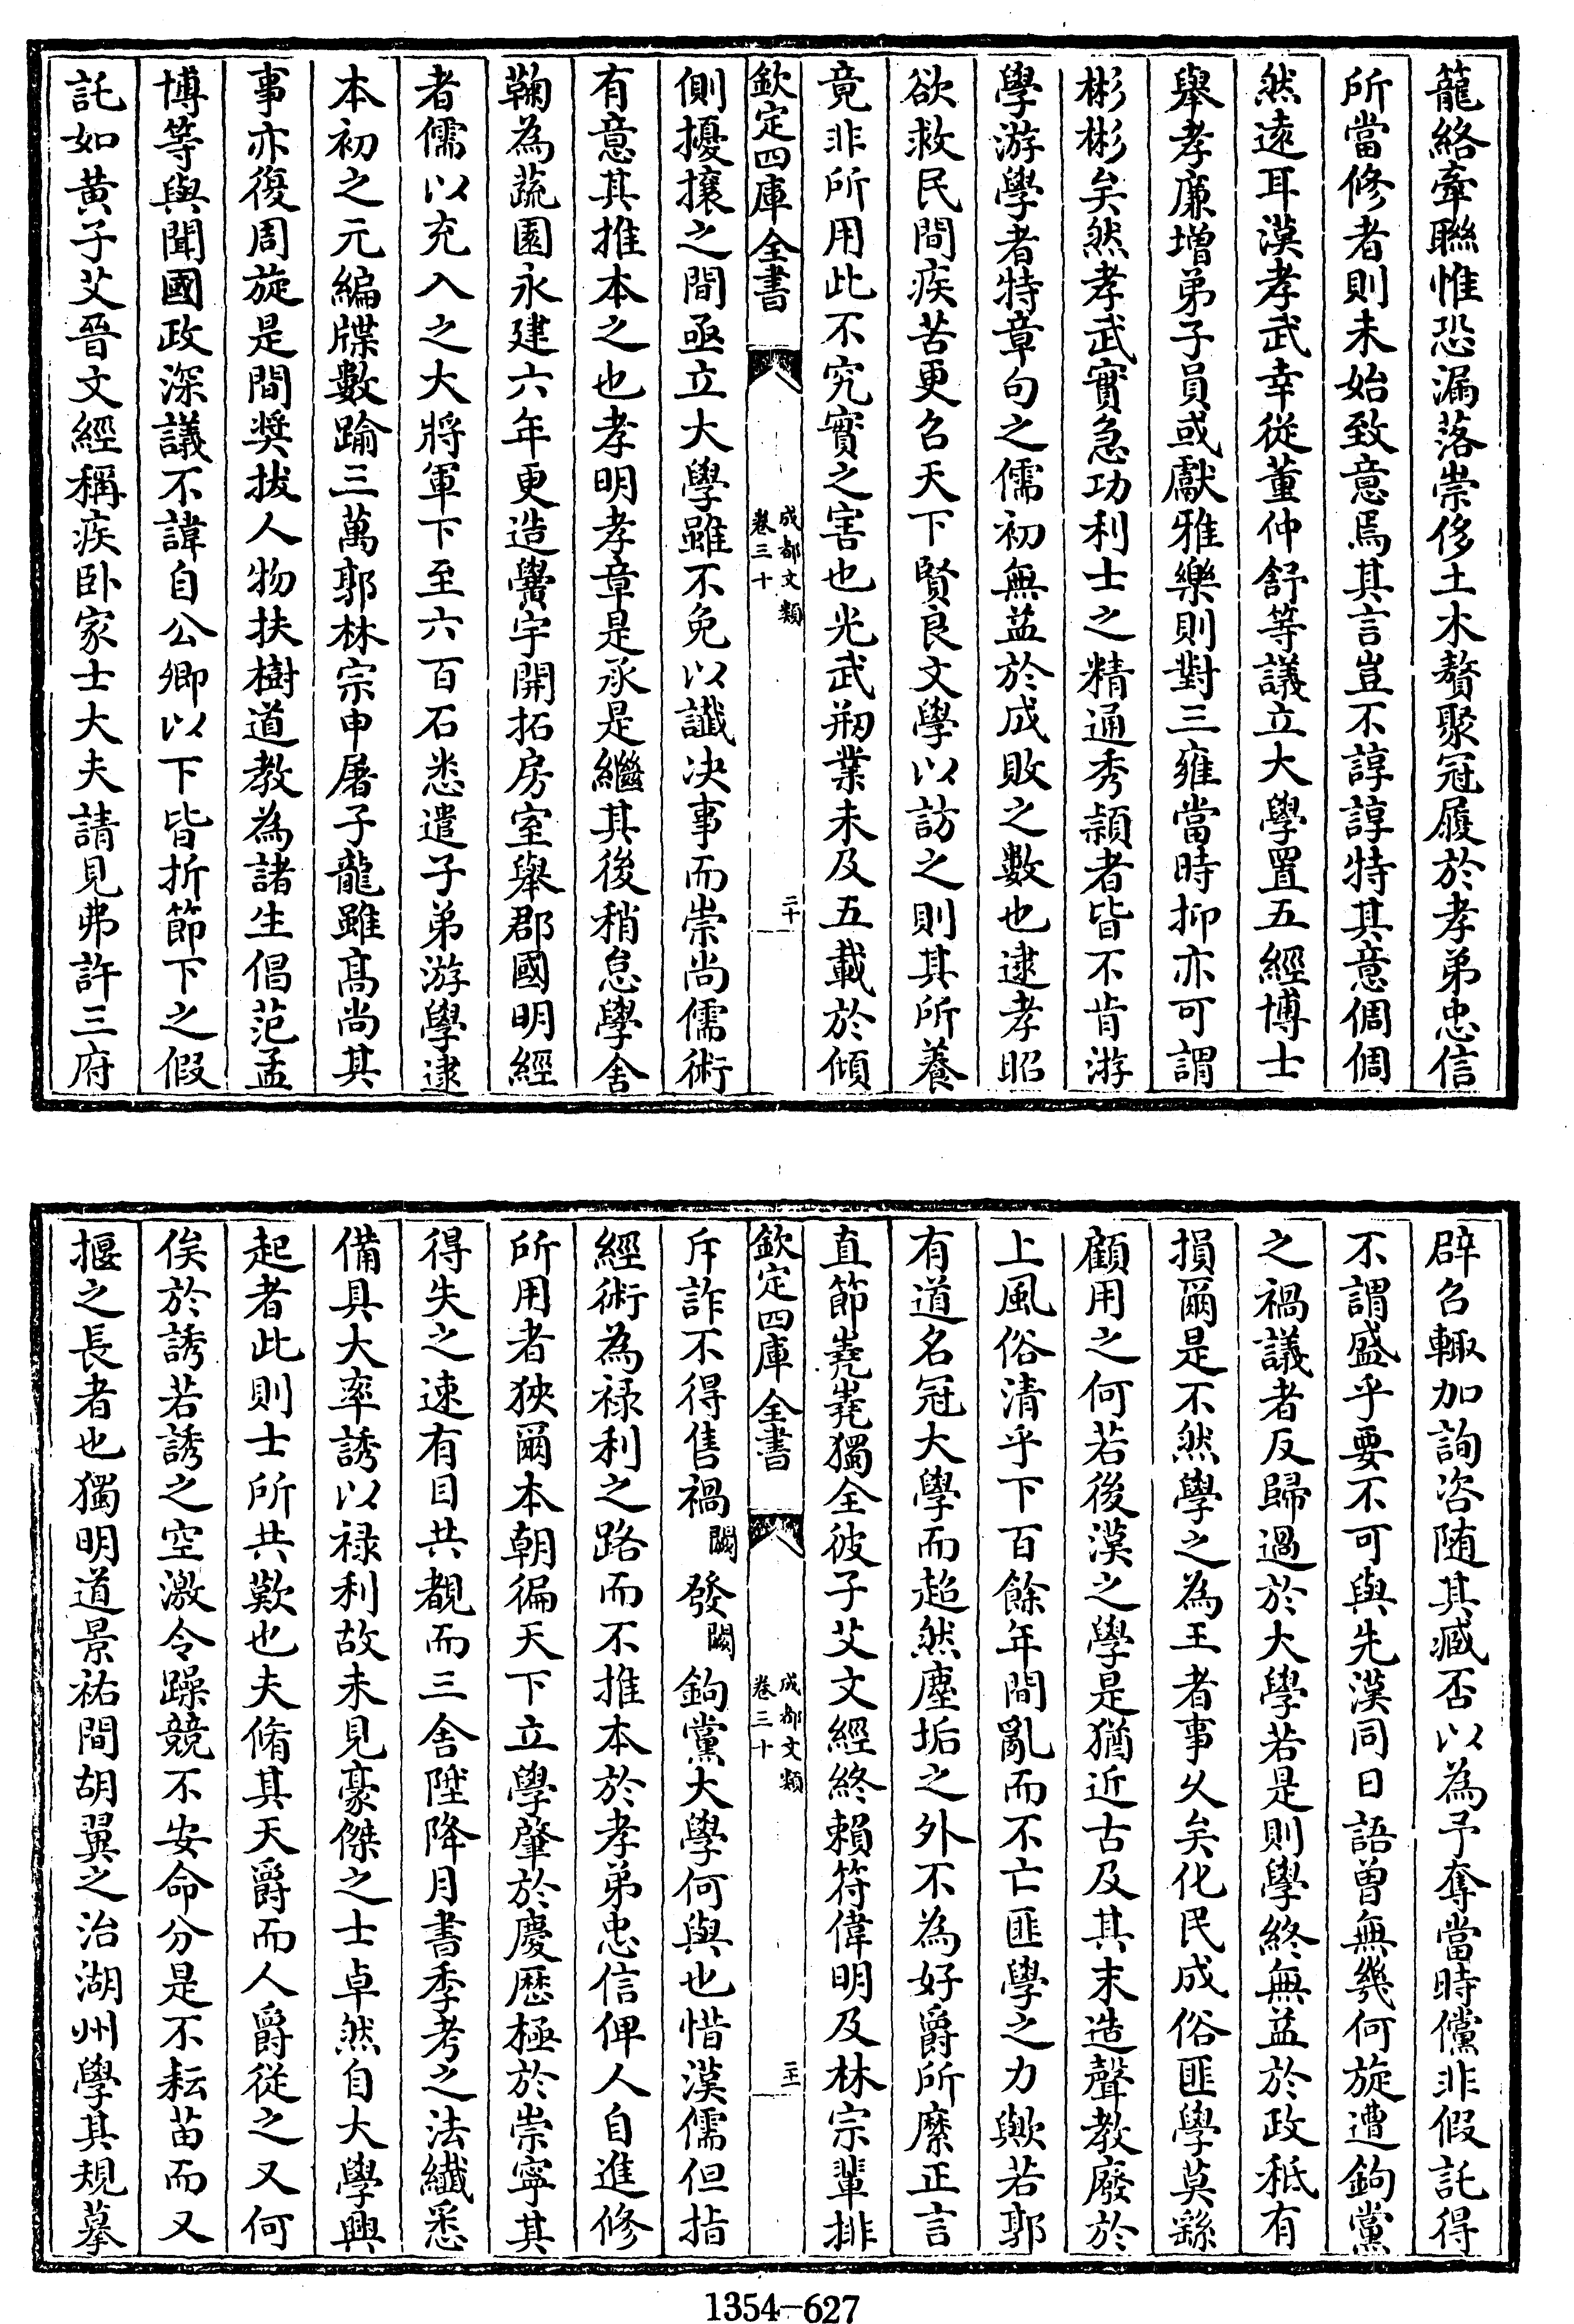 籠絡牽聯惟恐漏落崇侈土木贅聚冠履於孝弟忠信
所當修者則未始致意焉其言豈不諄諄特其意倜倜
然遠耳漢孝武幸從董仲舒等議立大學置五經博士
舉孝廉增弟子員或獻雅樂則對三雍當時抑亦可謂
彬彬矣然孝武實急功利士之精通秀頴者皆不肯游
學游學者特章句之儒初無益於成敗之數也逮孝昭
欲救民間疾苦更名天下賢良文學以訪之則其所養
竟非所用此不究實之害也光武刱業未及五載於傾
欽定四庫全書
成都文類
卷三十
二十
側擾攘之間亟立大學雖不免以讖决事而崇尚儒術
有意其推本之也孝明孝章是承是繼其後稍怠學舍
鞠為蔬園永建六年更造黌宇開拓房室舉郡國明經
者儒以充入之大將軍下至六百石悉遣子弟游學逮
本初之元編牒數踰三萬郭林宗申屠子龍雖髙尚其
事亦復周旋是間奬拔人物扶樹道教為諸生倡范孟
博等與聞國政深議不諱自公卿以下皆折節下之假
託如黄子艾晉文經稱疾卧家士大夫請見弗許三府
辟召輙加詢咨随其臧否以為予奪當時儻非假託得
不謂盛乎要不可與先漢同日語曽無幾何旋遭鉤黨
之禍議者反歸過於大學若是則學終無益於政秪有
損爾是不然學之為王者事乆矣化民成俗匪學莫繇
顧用之何若後漢之學是猶近古及其末造聲教廢於
上風俗清乎下百餘年間亂而不亡匪學之力歟若郭
有道名冠大學而超然塵垢之外不為好爵所縻正言
直節嶤嶤獨全彼子艾文經終賴符偉明及林宗輩排
欽定四庫全書
成都文類
卷三十
二十一
斥詐不得售禍闕發闕鉤黨大學何與也惜漢儒但指
經術為禄利之路而不推本於孝弟忠信俾人自進修
所用者狹爾本朝徧天下立學肇於慶厯極於崇寧其
得失之速有目共覩而三舍陞降月書季考之法纎悉
備具大率誘以禄利故未見豪傑之士卓然自大學興
起者此則士所共歎也夫脩其天爵而人爵從之又何
俟於誘若誘之空激令躁競不安命分是不耘苗而又
揠之長者也獨明道景祐間胡翼之治湖州學其規摹
1354-627